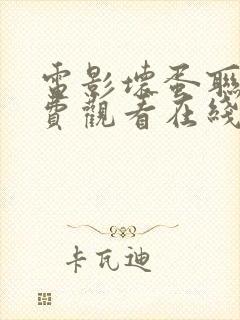 電影壞蛋聯
費觀看在綫
卡瓦迪